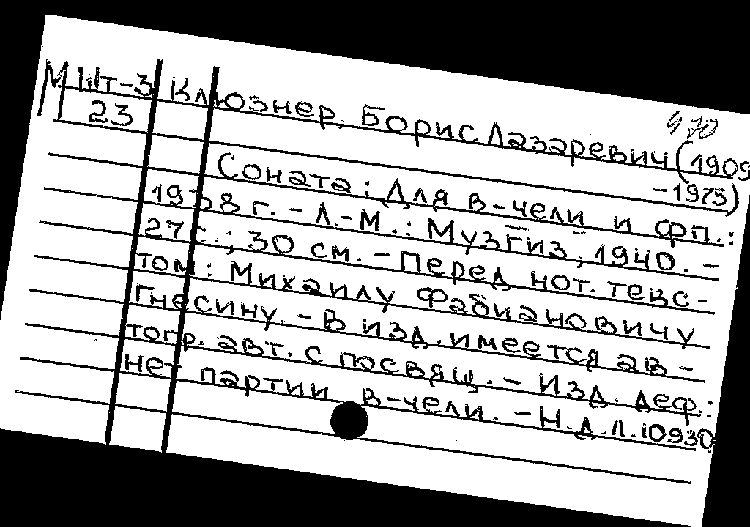 М Шт-3 Клюзнер, Борис Лазаревич (1909
23 -1975)
Соната: Для в-чели и фп.:
1938 г. - Л.-М.: Музгиз, 1940. -
27 с.; 30 см. - Перед нот. текс-
том: Михаилу Фабиановичу
Гнесину. - В изд. имеется ав-
тогр. авт. с посвящ. - Изд. деф.:
нет партии в-чели. - Н.д.Л.10930